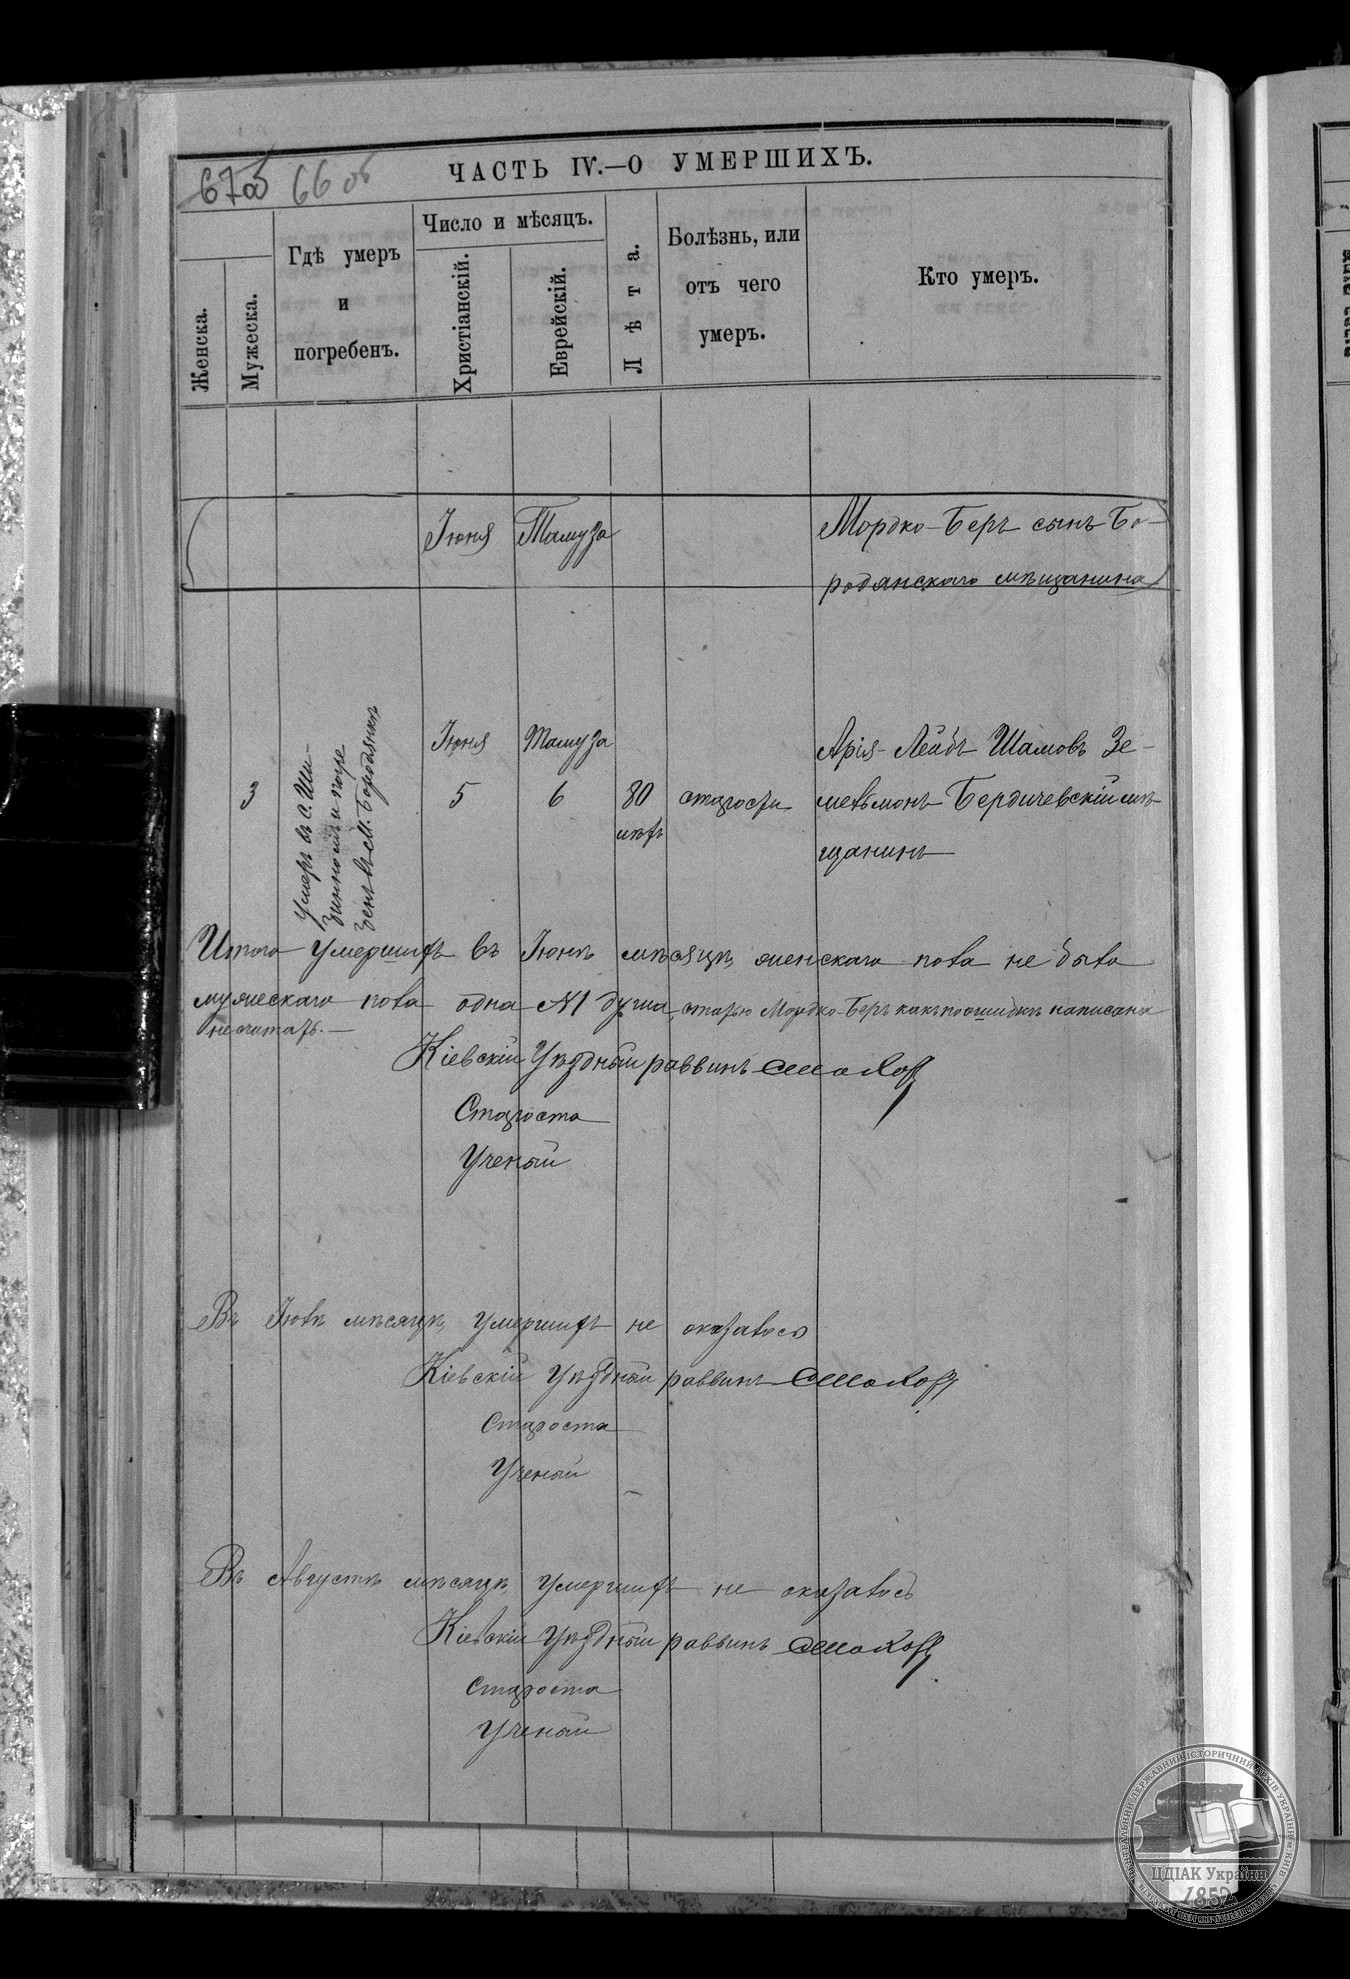 67об 66 об
ЧАСТЬ IV.—О УМЕРШИХЪ.
Женска.
Мужеска.
Гдѣ умеръ
и
погребенъ.
Число и мѣсяцъ.
Христіанскій.
Еврейскій.
Лѣта.
Болѣзнь, или
отъ чего
умеръ.
Кто умеръ.
Іюня Тамуза Мордко-Беръ сынъ Бо-
родянскаго мѣщанина
Умеръ въ с.
и погре
бенъ въ м. Бородянкѣ
Іюня Тамуза Арія-Лейбъ Шамовъ Зе-
3 5 6 80 старости Бердичевскій мѣ-
лѣтъ щанинъ
Итого умершихъ въ Іюнѣ мѣсяцѣ, женскаго пола не было
мужескаго пола одна №1 душа, статью Мордко-Беръ какъ по ошибкѣ написана
не считать.—
Кіевскій Уѣздный раввинъ
Староста
Ученый
Въ Іюлѣ мѣсяцѣ, умершихъ не оказалось
Кіевскій Уѣздный раввинъ
Староста
Ученый
Въ Августѣ мѣсяцѣ, умершихъ не оказалось
Кіевскій Уѣздный раввинъ
Староста
Ученый
ЦЕНТРАЛЬНИЙ ДЕРЖАВНИЙ ІСТОРИЧНИЙ АРХІВ УКРАЇНИ М.КИЇВ
ЦДІАК України
1852